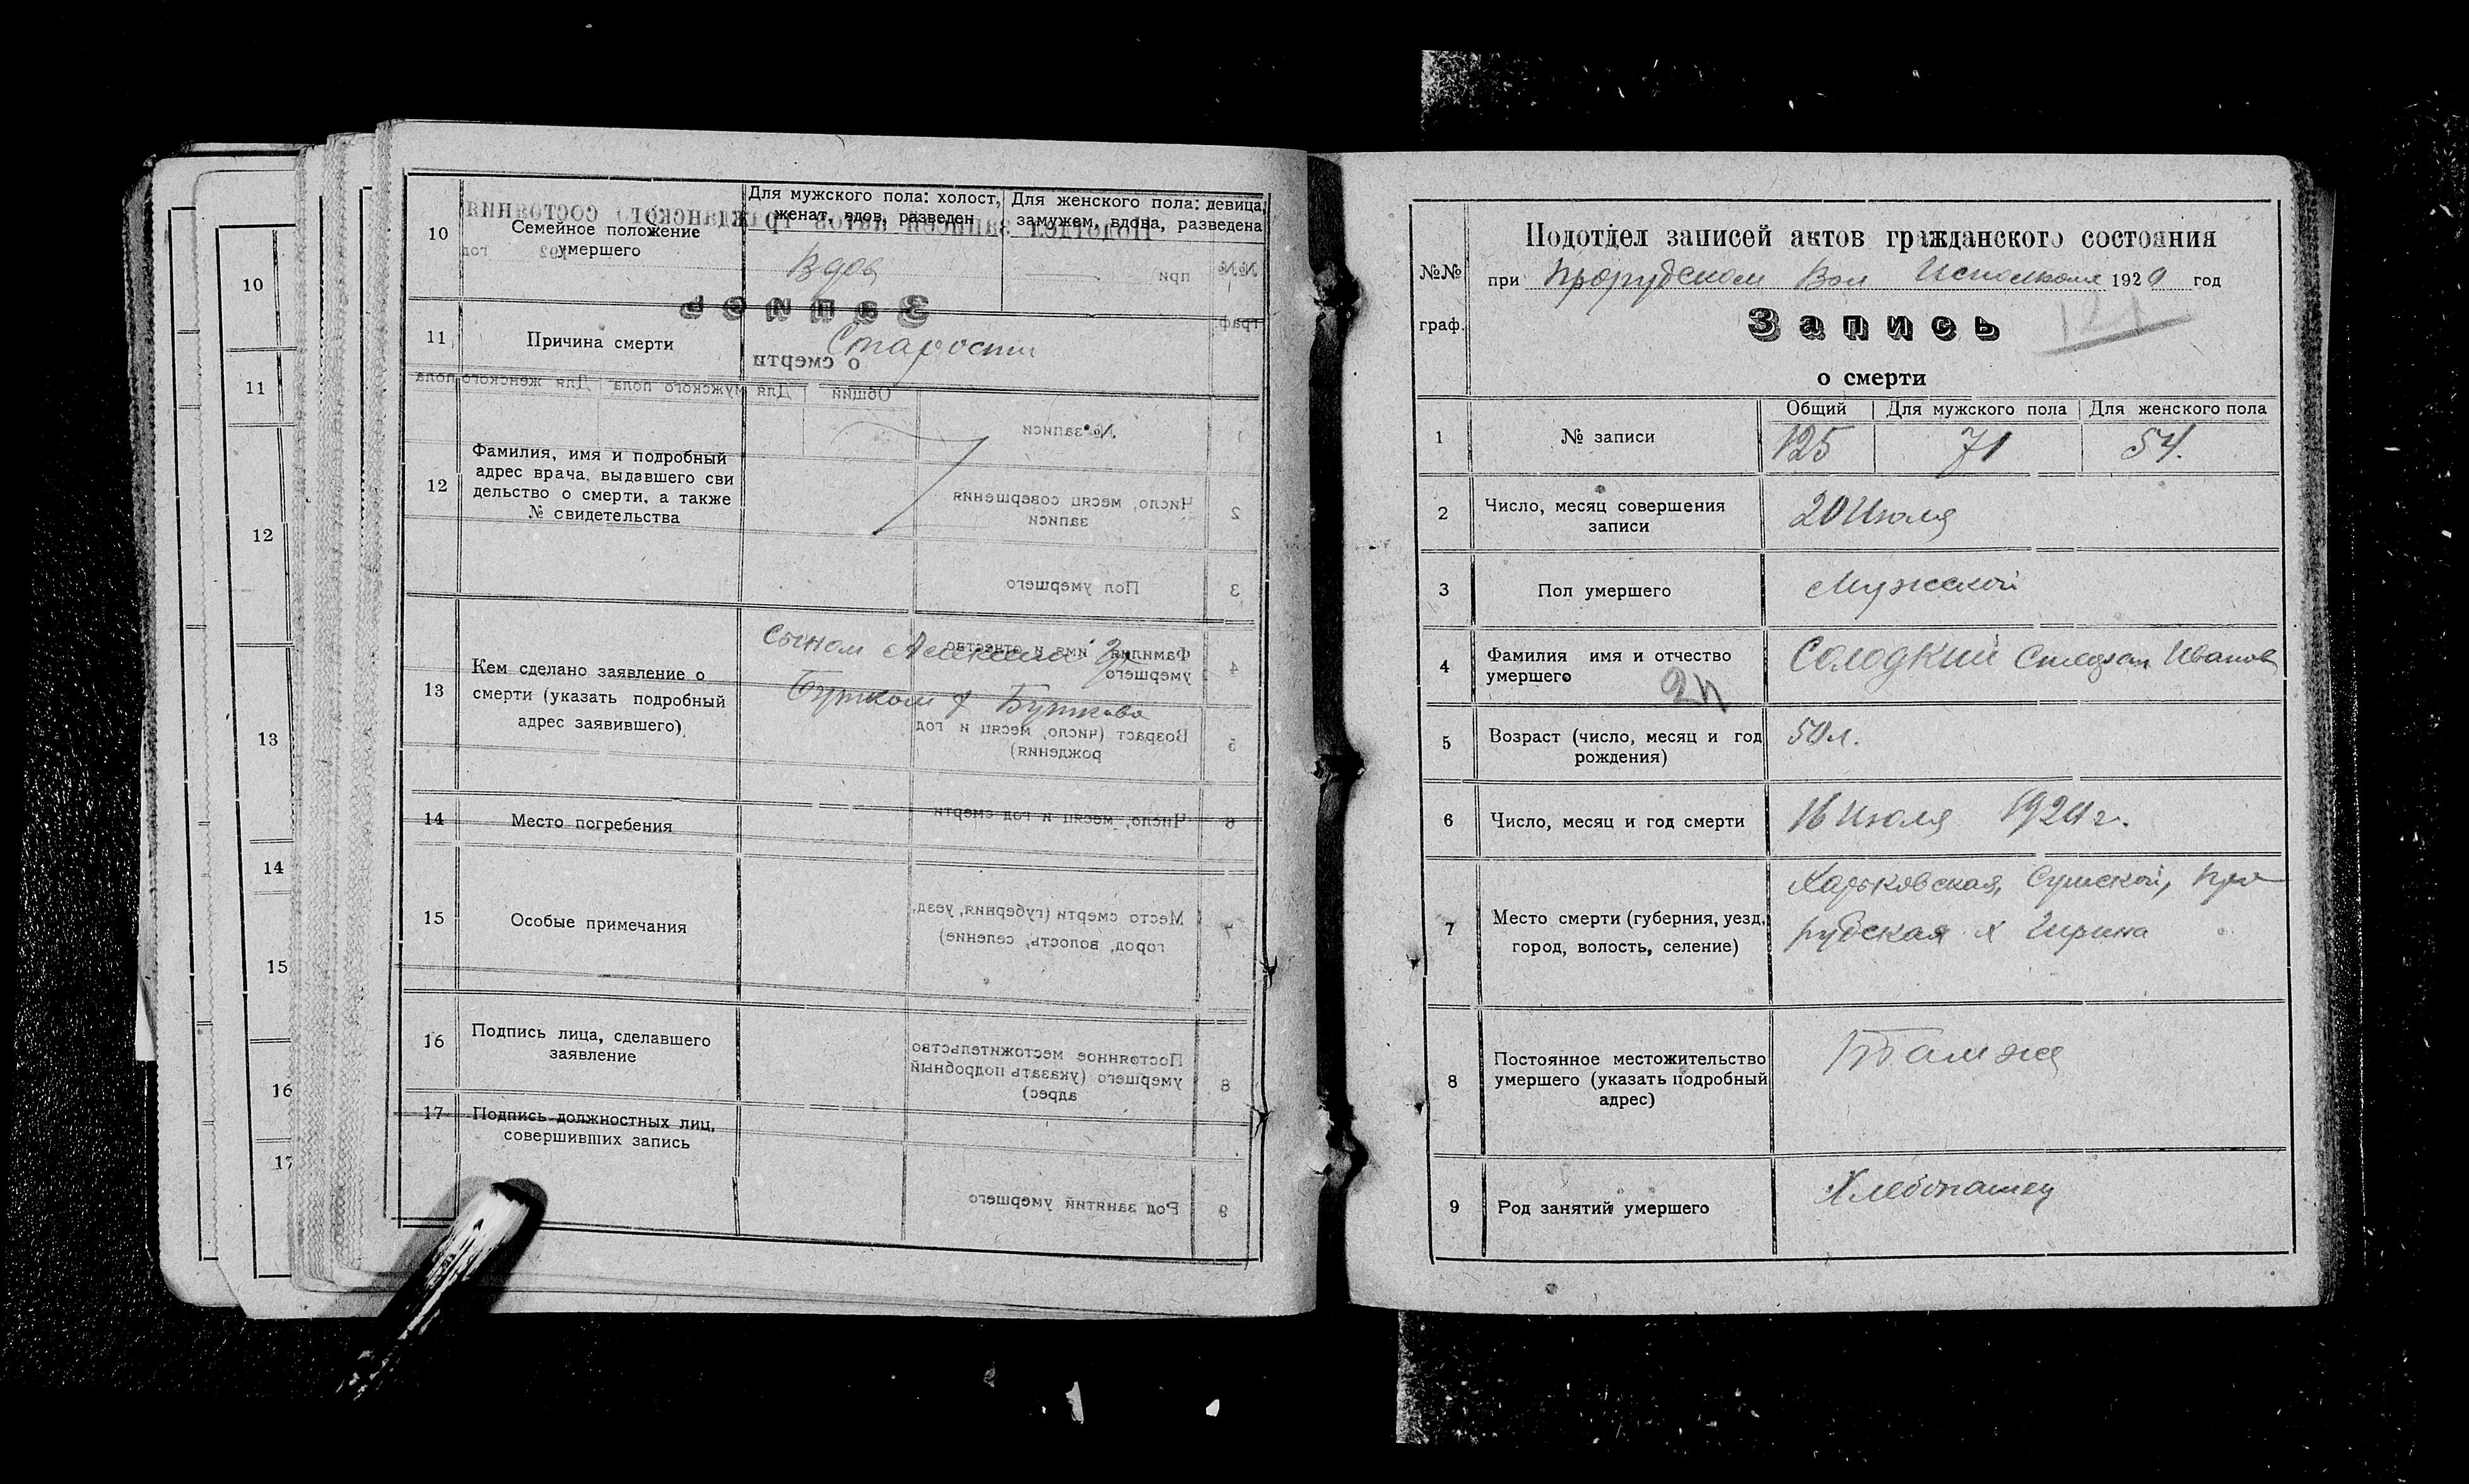 10
11
12
13
14
15
16
17
10
Семейное положение
умершего
Для мужского пола: холост,
женат, вдов, разведен
Для женского пола: девица,
замужем, вдова, разведена
Вдов
11
Причина смерти
Старости
12
Фамилия, имя и подробный
адрес врача, выдавшего сви
дельство о смерти, а также
№ свидетельства
13
Кем сделано заявление о
смерти (указать подробный
адрес заявившего)
Сыном Алексеем
14
Место погребения
15
Особые примечания
16
Подпись лица, сделавшего
заявление
17
Подпись должностных лиц,
совершивших запись
№№
граф.
Подотдел записей актов гражданского состояния
при Прорубском Вол Исполкоме 192 год
Запись
121
о смерти
1
№ записи
Общий
Для мужского пола
Для женского пола
125
71
54.
2
Число, месяц совершения
записи
20 Июля
3
Пол умершего
Мужской
4
Фамилия имя и отчество
умершего
Солодкий Иванов
5
Возраст (число, месяц и год
рождения)
50 л.
6
Число, месяц и год смерти
16 Июля
7
Место смерти (губерния, уезд,
город, волость, селение)
Харьковская, Сумской, Про
рубская х
8
Постоянное местожительство
умершего (указать подробный
адрес)
там же
9
Род занятий умершего
Хлебопашец